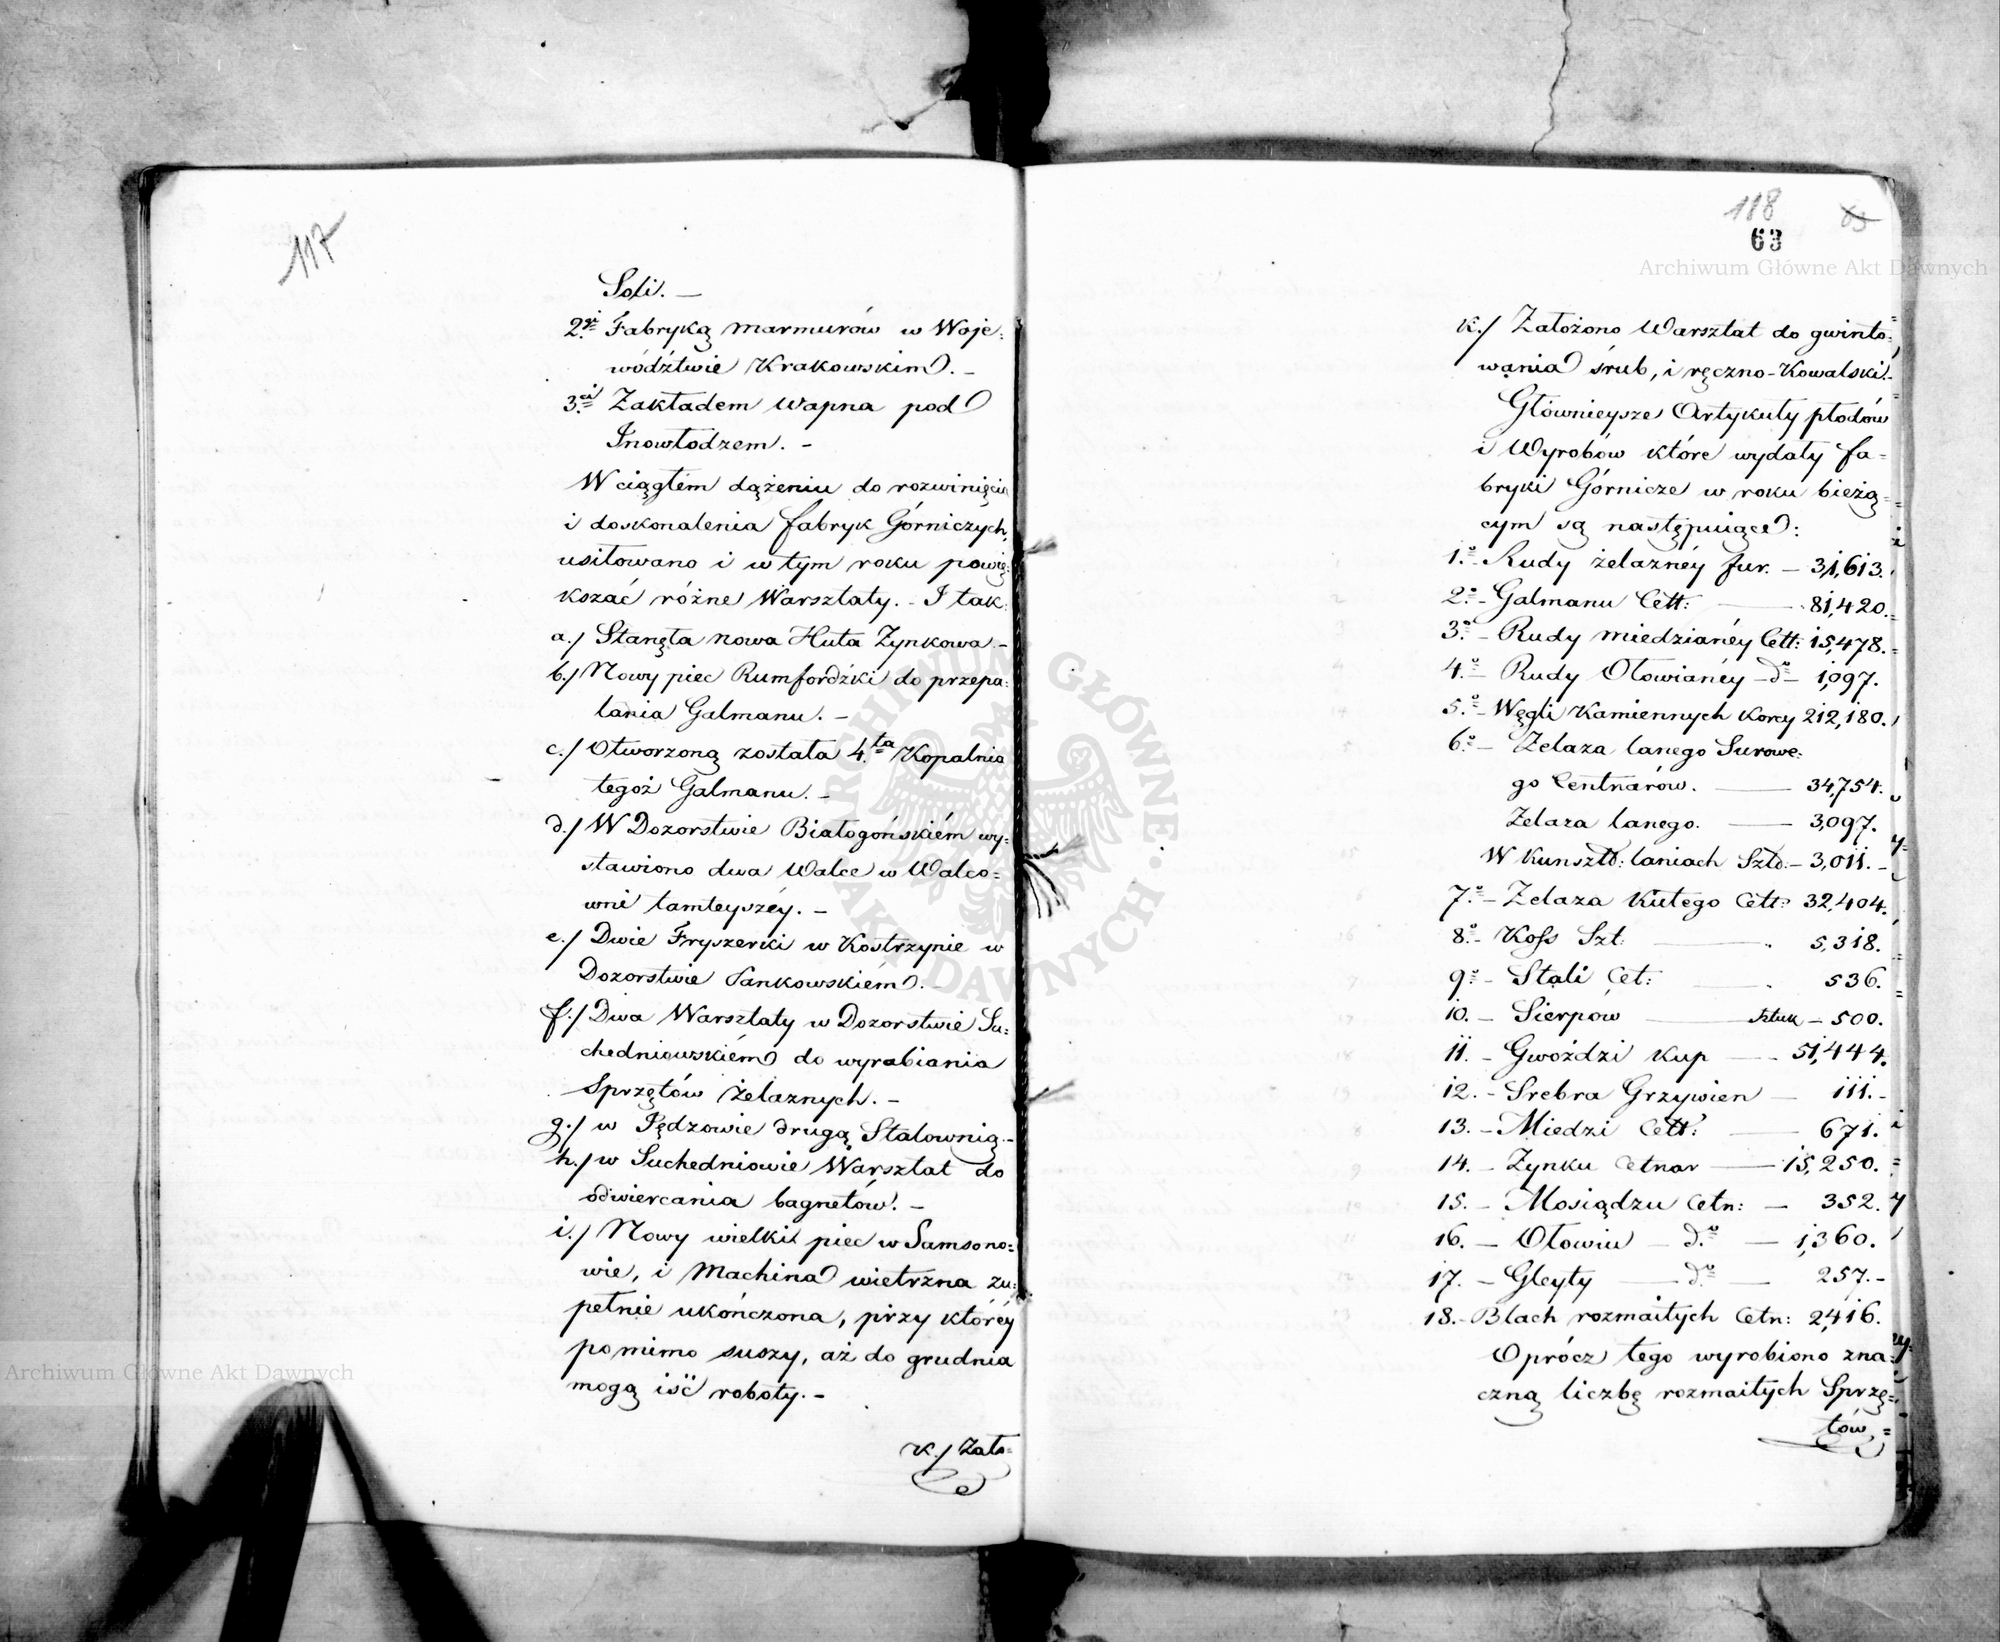 117
Soli. —
2.gi Fabryką marmurów w Woje:
wództwie Krakowskim. -
3.ci Zakładem Wapna pod
Inowłodzem. -
W ciągłem dążeniu do rozwinięcia
i doskonalenia fabryk Górniczych,
usiłowano i w tym roku powię:
kszać różne Warsztaty. - I tak:
a./ Stanęła nowa Huta Zynkowa. -
b./ Nowy piec Rumfordzki do przepa:
lania Galmanu. -
c./ Otworzoną została 4.ta Kopalnia
tegoż Galmanu. -
d./ W Dozorstwie Białogońskiém wy:
stawiono dwa Walce w Walco=
wni tamteyszéy. -
e./ Dwie Fryszerki w Kostrzynie w
Dozorstwie Pankowskiém. -
f./ Dwa Warsztaty w Dozorstwie Su:
chedniowskiém do wyrabiania
Sprzętów żelaznych. -
g./ w Pędzowie drugą Stalownią. -
h./ w Suchedniowie Warsztat do
odwiercania bagnetów. -
i./ Nowy wielki piec w Samsono=
wie, i Machina wietrzna zu:
pełnie ukończona, przy któréy
pomimo suszy, aż do grudnia
mogą iść roboty. -
k./ Zało=
118
63
Archiwum Główne Akt Dawnych
k./ Założono Warsztat do gwinto:
wania śrub, i ręczno-Kowalski. -
Głównieysze Artykuły płodów
i Wyrobów które wydały fa=
bryki Górnicze w roku bieżą=
cym są następuiące:
1.° - Rudy żelaznéy fur. — 31,613.
2.° - Galmanu Cett: — 81,420.
3.° - Rudy miedzianéy Cett: 15,478.
4.° - Rudy Ołowianéy — d° — 1,097.
5.° - Węgli Kamiennych Korcy 212,180.
6.° - Żelaza lanego Surowe:
go Centnarów. — 34,754.
Żelaza lanego. — 3,097.
W Kunsztd: laniach Sztd. — 3,011. -
7.° - Żelaza Kutego Cett: 32,404.
8.° - Koss Szt: — 5,318.
9.° - Stali Cet: — 536.
10. - Sierpów — Sztuk — 500.
11. - Gwoździ Kup — 51,444.
12. - Srebra Grzywien — 111. -
13. - Miedzi Cett: — 671.
14. - Zynku Cetnar — 15,250.
15. - Mosiądzu Cetn: — 352.
16. - Ołowiu — d.° — 1,360.
17. - Gleyty — d.° — 257. -
18. - Blach rozmaitych Cetn: 2,416.
Oprócz tego wyrobiono zna:
czną liczbę rozmaitych Sprzę=
tów
ARCHIWUM GŁÓWNE AKT DAWNYCH
Archiwum Główne Akt Dawnych